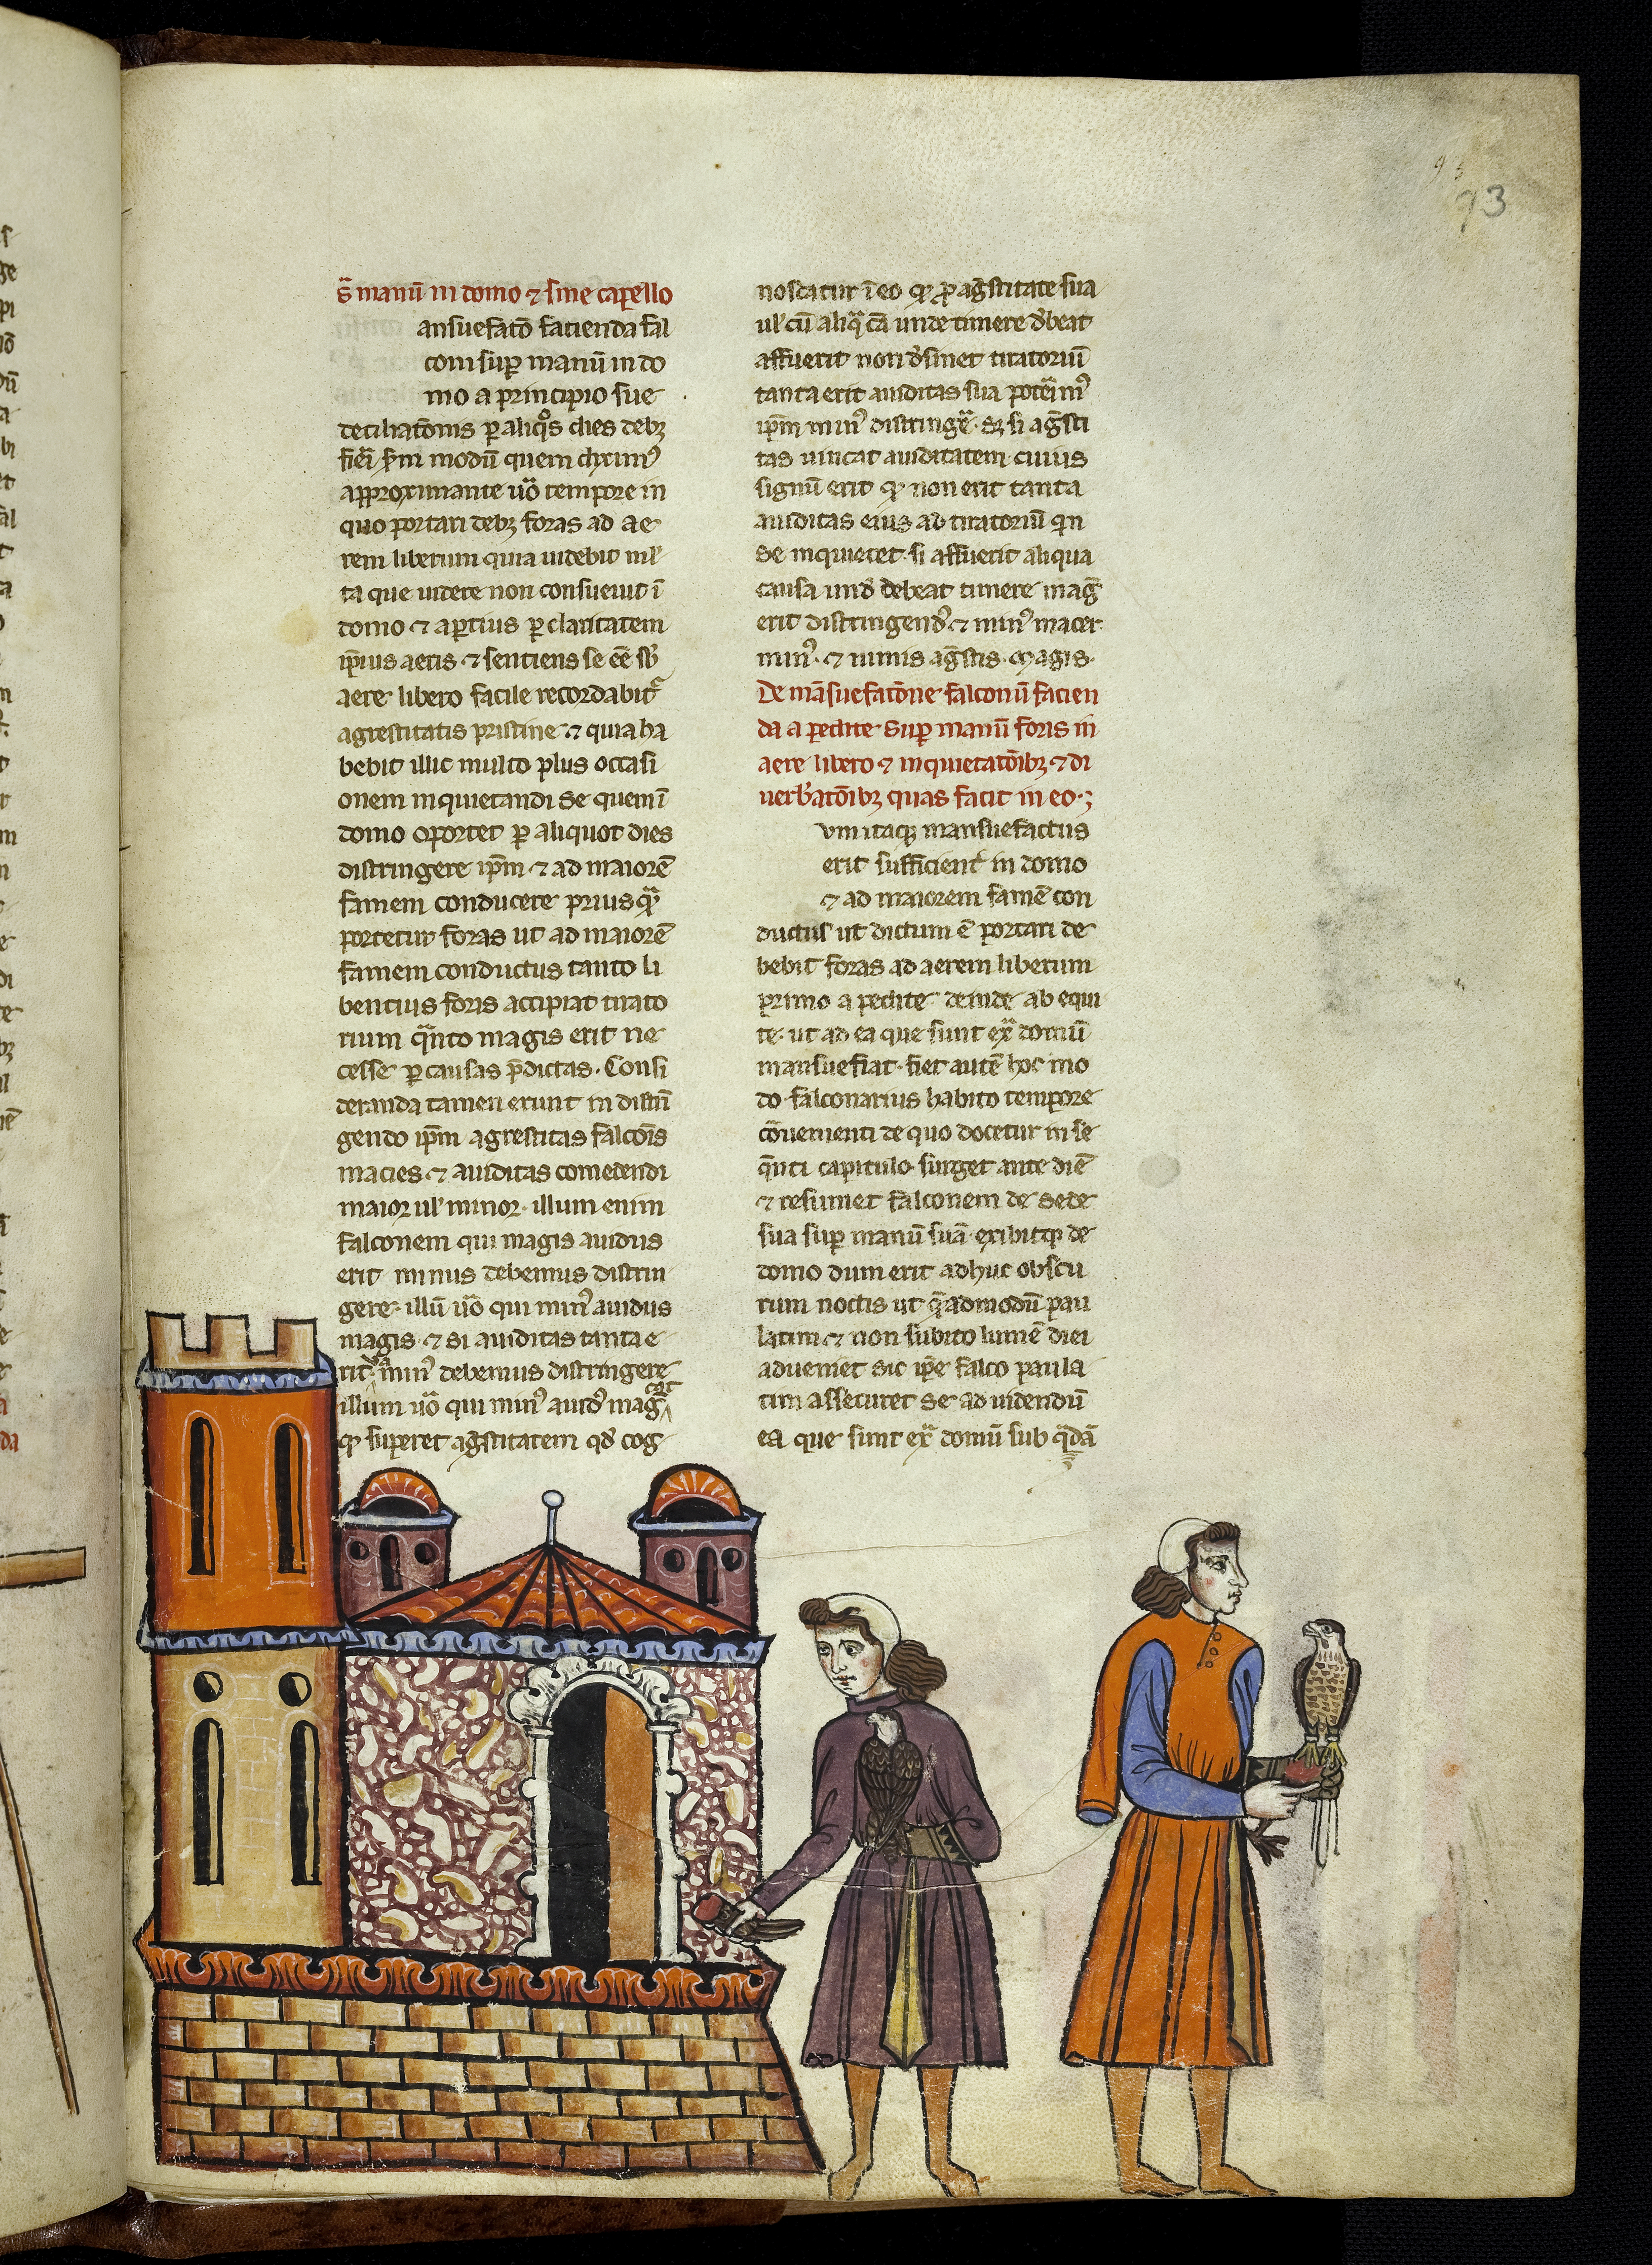 73
s̄ manū in domo ⁊ sine capello
ansuefatō facienda fal
coni sup manū in do
mo a principio sue
deciliatōnis p aliq̊s dies debꝫ
fieri s̄m modū quem diximꝰ
approximante uō tempore in
quo portari debꝫ foras ad ae
rem liberum quia uidebit ml̄
ta que uidere non consueuit ī
domo ⁊ aptius p claritatem
ip̄ius aeris ⁊ sentiens se eē sb̄
aere libero facile recordabit᷑
agrestitatis pristine ⁊ quia ha
bebit illic multo plus occasi
onem inquietandi se quem ī
domo oportet p aliquot dies
distringere ip̄m ⁊ ad maiorē
famem conducere priusq̄
portetur foras ut ad maiorē
famem conductus tanto li
bentius foris accipiat tirato
rium q̄nto magis erit ne
cesse p causas p̄dictas. Consi
deranda tamen erunt in distrī
gendo ip̄m agrestitas falcōis
macies ⁊ auiditas comedendi
maior ul̓ minor. illum enim
falconem qui magis auidus
erit minus debemus distrin
gere. illū uō qui minꝰ auidus
magis. ⁊ si auiditas tanta e
rit minꝰ debemus distringere
illum uō qui minꝰ auidꝰ maḡ
ꝙ superet agr̄stitatem qd̓ cog
noscatur ī eo ꝙ ꝓ agr̄stitate sua
ul̓ cū aliq̄ cā unde timere d̓beat
affuerit non d̓sinet tiratoriū
tanta erit auiditas sua
ip̄m minꝰ distringe᷑. sꝫ si agr̄sti
tas uincat auiditatem cuius
signū erit ꝙ non erit tanta
auiditas eius ad tiratoriū q̄n
se inquietet. si affuerit aliqua
causa und̓ debeat timere maḡ
erit distringendꝰ ⁊ minꝰ macer
minꝰ. ⁊ nimis agr̄stis. magis.
De māsuefatōne falconū facien
da a pedite sup manū foris in
aere libero ⁊ inquietatōibꝫ ⁊ di
uerb̄atōibꝫ quas facit in eo.
vm itaqꝫ mansuefactus
erit sufficient̓ in domo
⁊ ad maiorem famē con
ductus ut dictum ē portari de
bebit foras ad aerem liberum
primo a pedite deinde ab equi
te. ut ad ea que sunt ex̄ domū
mansuefiat. fiet autē hoc mo
do. falconarius habito tempore
cōuenienti de quo docetur in se
q̄nti capitulo. surget ante diē
⁊ resumet falconem de sede
sua sup manū suā. exibitqꝫ de
domo dum erit adhuc obscu
rum noctis ut q̄admodū pau
latim ⁊ non subito lumē diei
adueniet sic ip̄e falco paula
tim assecuret se ad uidendū
ea que sunt ex̄ domū sub q̄dā